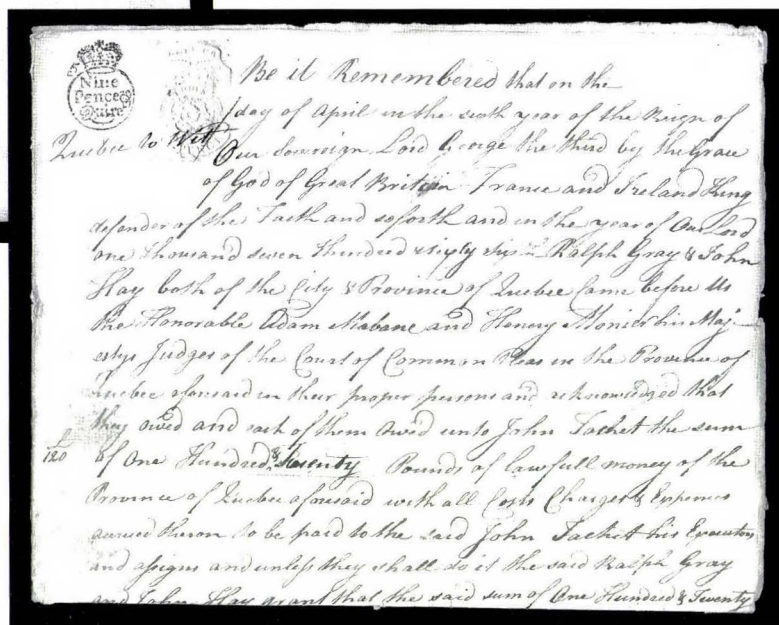 Nine
Pence p
Quire
Be it Remembered that on the
day of April in the sixth year of the Reign of
Quebec to Witt
Our Sovereign Lord George the third by the Grace
of God of Great Britain France and Ireland King
defender of the Faith and soforth and in the year of Our Lord
one thousand seven Hundred & sixty six Ralph Gray & John
Hay both of the City & Province of Quebec Came before Us
the Honorable Adam Mabane and Henry Monier his Maj-
estys Judges of the Court of Common Pleas in the Province of
Quebec aforesaid in their proper persons and acknowledged that
they owed and each of them Owed unto John Sacket the sum
£
120
of One Hundred & Twenty Pounds of lawfull money of the
Province of Quebec aforesaid with all Costs Charges & Expences
accrued theron to be paid to the said John Sacket his Executors
and assigns and unless they shall do it the said Ralph Gray
and John Hay grant that the said sum of One Hundred & Twenty